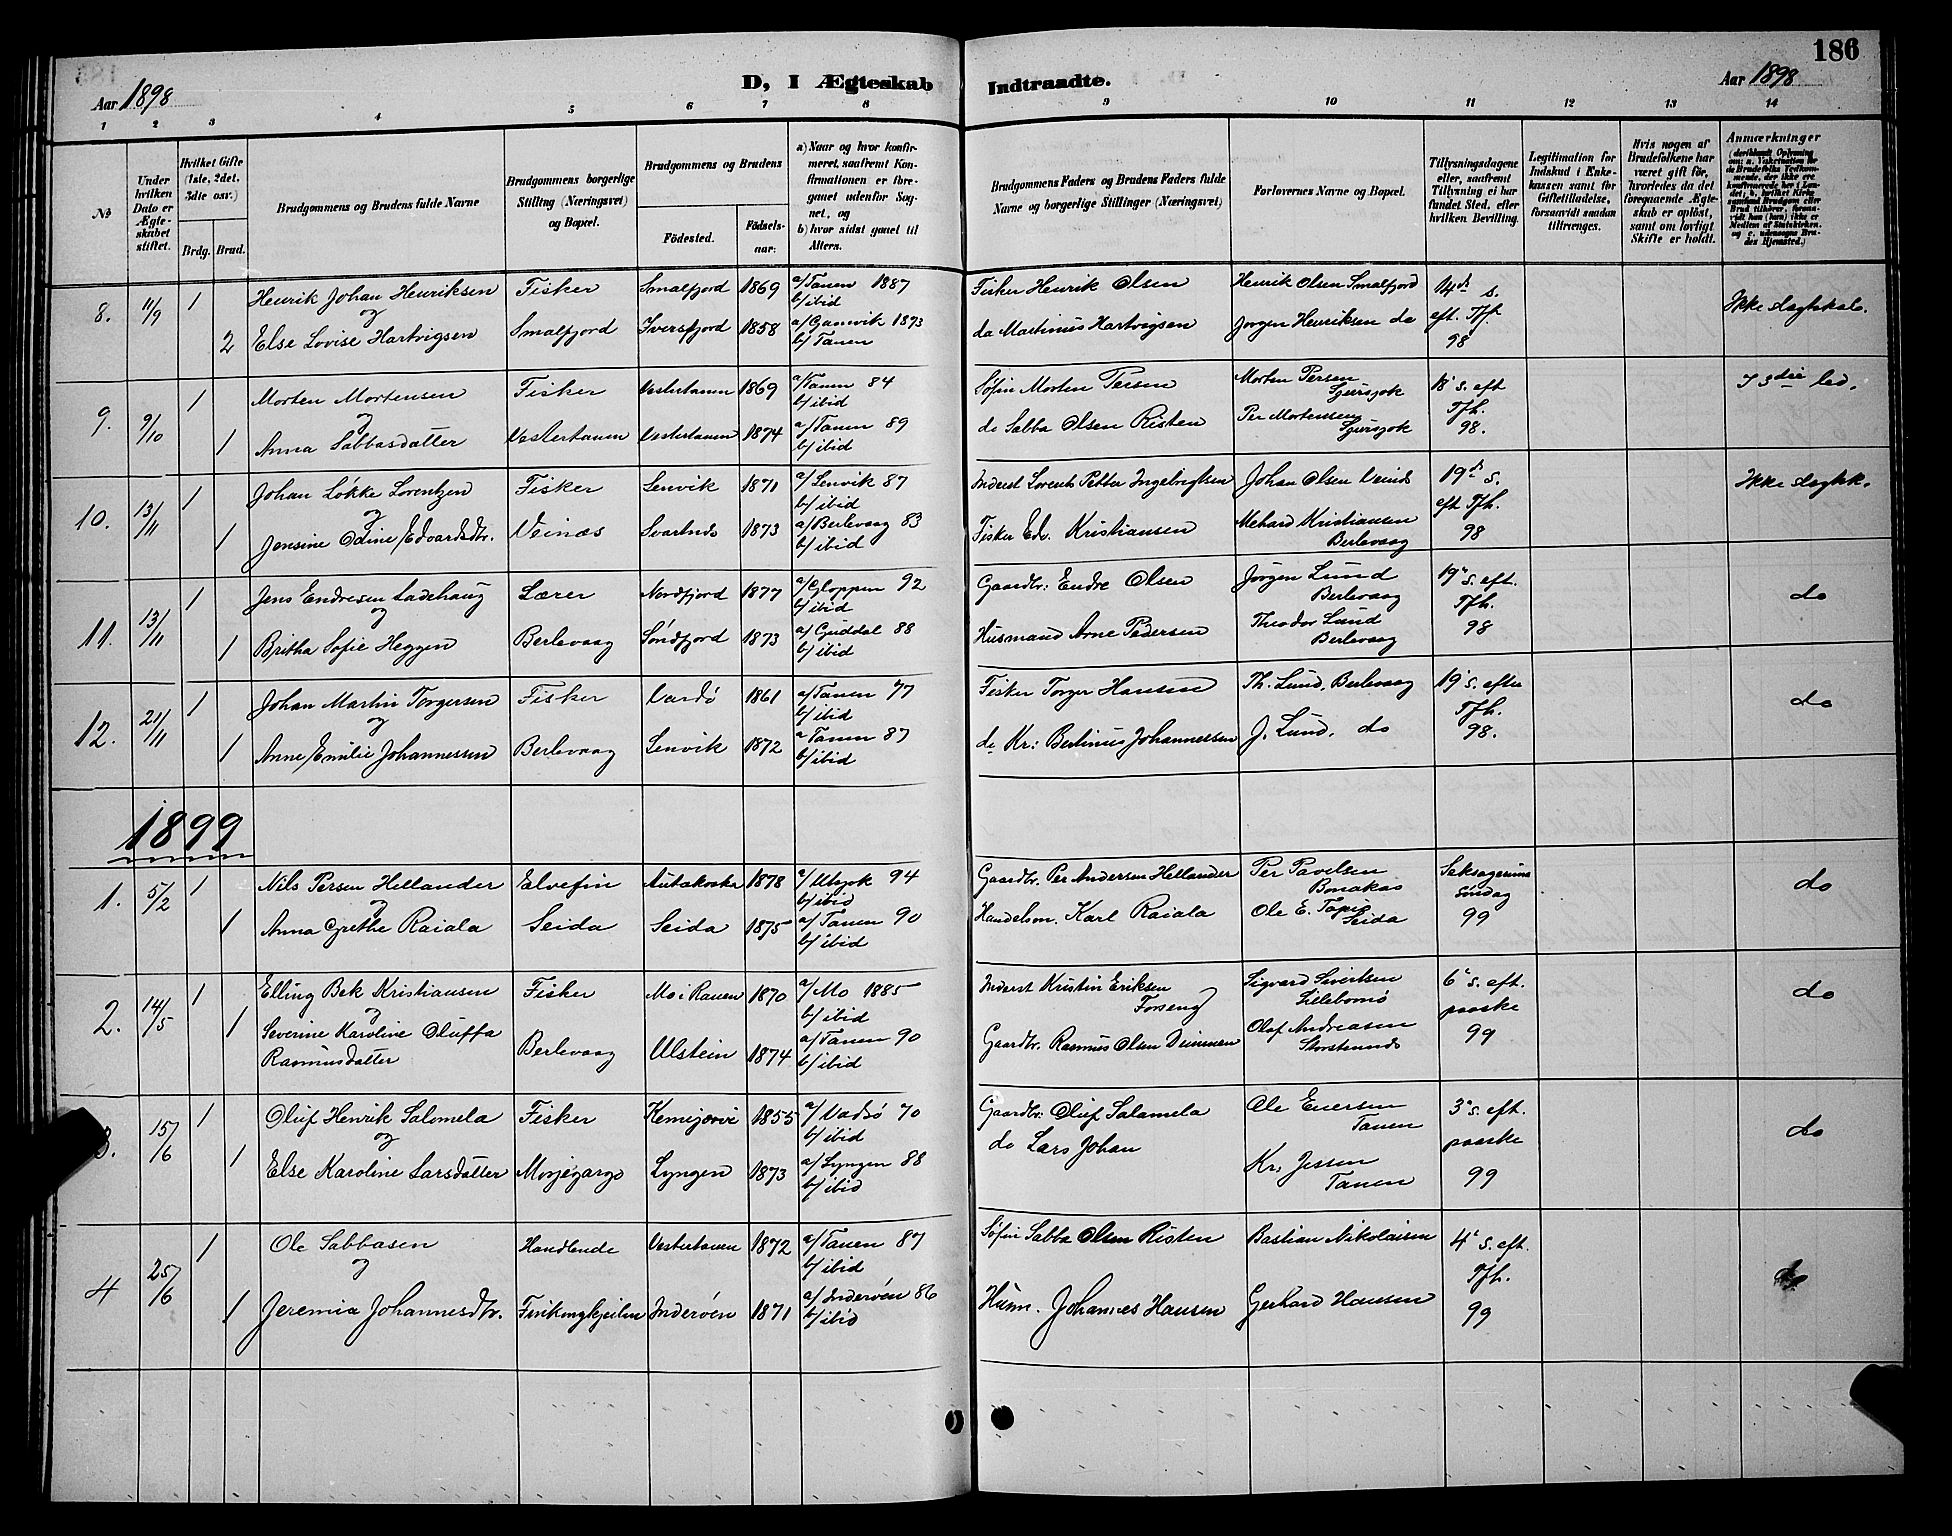 186
D, I Ægteskab Indtraadte.
Aar 1898
Aar 1898
1 2 3 4 5 6 7 8 9 10 11 12 13 14
№
Under hvilken Dato er Ægteskabet stiftet.
Hvilket Gifte (1ste, 2det, 3die osv.)
Brdg. Brud.
Brudgommens og Brudens fulde Navne
Brudgommens borgerlige Stilling (Næringsvei) og Bopæl.
Brudgommens og Brudens
Födested.
Födselsaar.
a) Naar og hvor konfirmeret, saafremt Konfirmationen er foregaaet udenfor Sognet, og
b) hvor sidst gaaet til Alters.
Brudgommens Faders og Brudens Faders fulde Navne og borgerlige Stillinger (Næringsvei)
Forlovernes Navne og Bopæl.
Tillysningsdagene eller, saafremt Tillysning ei har fundet Sted, efter hvilken Bevilling.
Legitimation for Indskud i Enkekassen samt for Giftetilladelse, forsaavidt saadan tiltrænges.
Hvis nogen af Brudefolkene har været gift før, hvorledes da det foregaaende Ægteskab er oplöst, samt om lovligt Skifte er holdt.
Anmærkninger
8. 11/9 1 Henrik Johan Henriksen Fisker Smalfjord 1869 a/Tanen 1887 b/ibid Fisker Henrik Olsen Henrik Olsen Smalfjord 14de s.
og
2 Else Lovise Hartvigsen Smalfjord Iversfjord 1858 a/Gamvik 1873 b/Tanen do Martinus Hartvigsen Jørgen Henriksen do eft. Tfh. 98 Ikke slægtskab.
9. 9/10 1 Morten Mortensen Fisker Vestertanen 1869 a/Tanen 84 b/ibid Søfin Morten Persen Morten Persen 18 s. eft
og
1 Anna Sabbasdatter Vestertanen Vestertanen 1874 a/Tanen 89 b/ibid do Sabba Olsen Risten Per Mortensen Tfh. 98. i 3die led.
10. 13/11 1 Johan Løkke Lorentzen Fisker Lenvik 1871 a/Lenvik 87 b/ibid Inderst Lorents Petter Ingebrigtsen Johan Olsen 19de s.
og
1 Jensine Odine Edvardsdtr. Veinæs Svartnes 1873 a/Berlevaag 83 b/ibid Fisker Edv. Kristiansen Mehard Kristiansen Berlevaag eft Tfh. 98 Ikke slægtsk.
11. 13/11 1 Jens Endresen Ladehaug Lærer Nordfjord 1877 a/Gloppen 92 b/ibid Gaardbr: Endre Olsen Jørgen Lund Berlevaag 19 s. eft.
og
1 Britha Sofie Heggen Berlevaag Söndfjord 1873 a/Guddal 88 b/ibid Husmand Arne Pedersen Theodor Lund Berlevaag Tfh. 98 do
12. 21/11 1 Johan Martin Torgersen Fisker Vardö 1861 a/Tanen 77 b/ibid Fisker Torger Hansen Th. Lund, Berlevaag 19 s. efter
og
1 Anne Emilie Johannessen Berlevaag Lenvik 1872 a/Tanen 87 b/ibid do Kr: Bertinus Johannessen J. Lund, do Tfh. 98. do
1899
1. 5/2 1 Nils Persen Hellander Elvefin 1878 a/Utsjok 94 b/ibid Gaardbr. Per Andersen Hellander Per Pavelsen Bonakas Seksagesima Søndag
og
1 Anna Grethe Raiala Seida Seida 1875 a/Tanen 90 b/ibid Handelsm. Karl Raiala Ole E. Tapio Seida 99 do
2. 14/5 1 Elling Bek Kristiansen Fisker Mo i Ranen 1870 a/Mo 1885 b/ibid Inderst Kristin Eriksen Forseng Sigvard Sivertsen 6 s. eft.
og
1 Severine Karoline Oluffa Rasmusdatter Berlevaag Ulstein 1874 a/Tanen 90 b/ibid Gaardbr. Rasmus Olsen Dimmen Olaf Andreasen paaske 99 do
3. 15/6 1 Oluf Henrik Salomela Fisker Kemijærvi 1855 a/Vadsø 70 b/ibid Gaardbr: Oluf Salamela Ole Eversen Tanen 3 s. eft.
og
1 Else Karoline Larsdatter Lyngen 1873 a/Lyngen 88 b/ibid do Lars Johan Kr. Jessen Tanen paaske 99 do
4 25/6 1 Ole Sabbasen Handlende Vestertanen 1872 a/Tanen 87 b/ibid Søfin Sabba Olsen Risten Bastian Nikolaisen 4 s. eft.
og
1 Jeremia Johannesdtr. Inderöen 1871 a/Inderöen 86 b/ibid Husm. Johannes Hansen Gerhard Hansen Tfh. 99 do